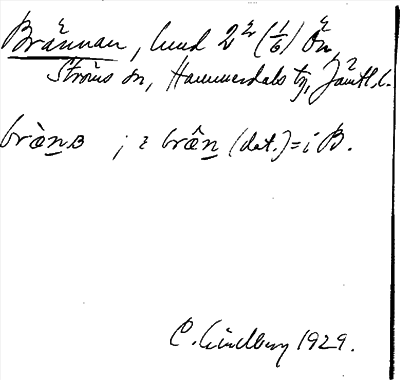 Brännan, lund 2 (1/6) Ön,
Ströms sn, Hammerdals tg, Jämtl. l.
bræ̀nɜ ; i bræ̂n (dat.) = i B.
C. Lindberg 1929.